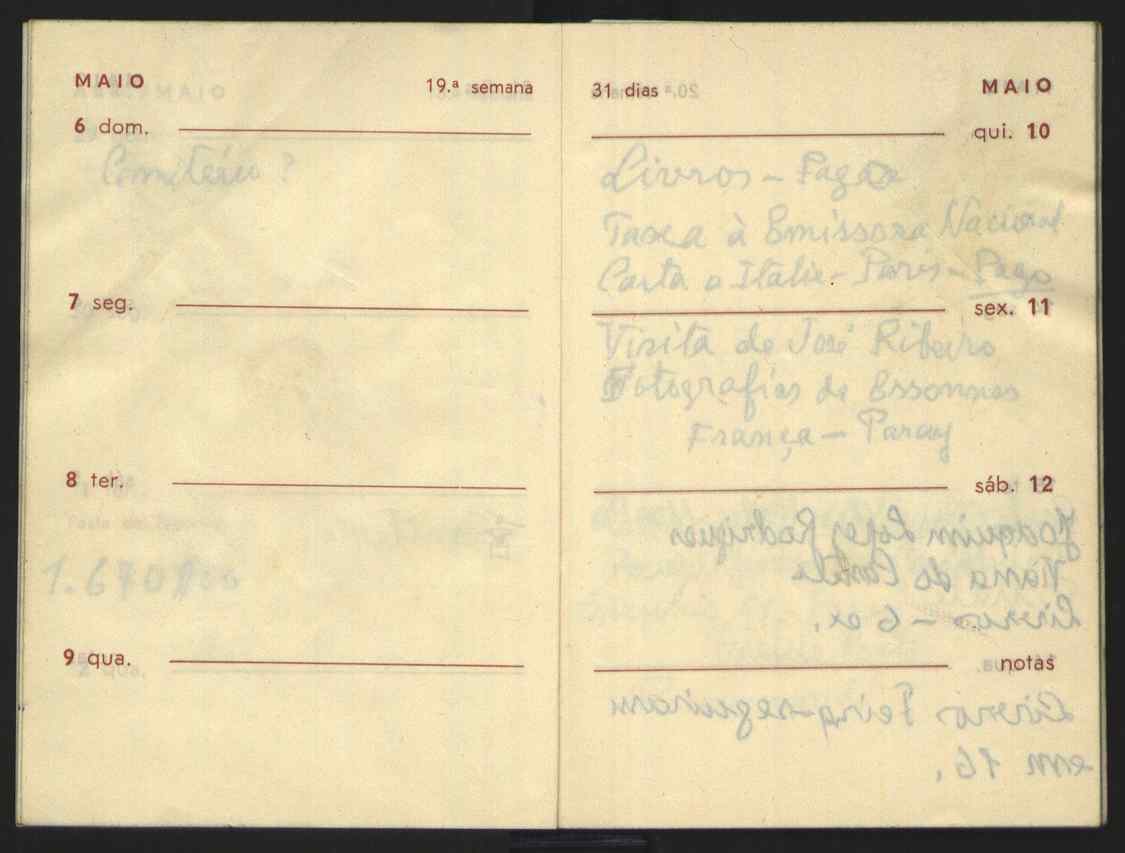 MAIO 19.ª semana
6 dom.
Cemitério ?
7 seg.
8 ter.
1.670$00
9 qua.
31 dias MAIO
qui. 10
Livros - Pago
Taxa à Emissora Nacional
Carta a Itália - Paris - Pago
sex. 11
Visita de José Ribeiro
Fotografias de Essonnes
França - Paray
sáb. 12
Joaquim Lopes Rodrigues
Viana do Castelo
Livros - 6 ex.
notas
Livros Feira seguiram
em 16.